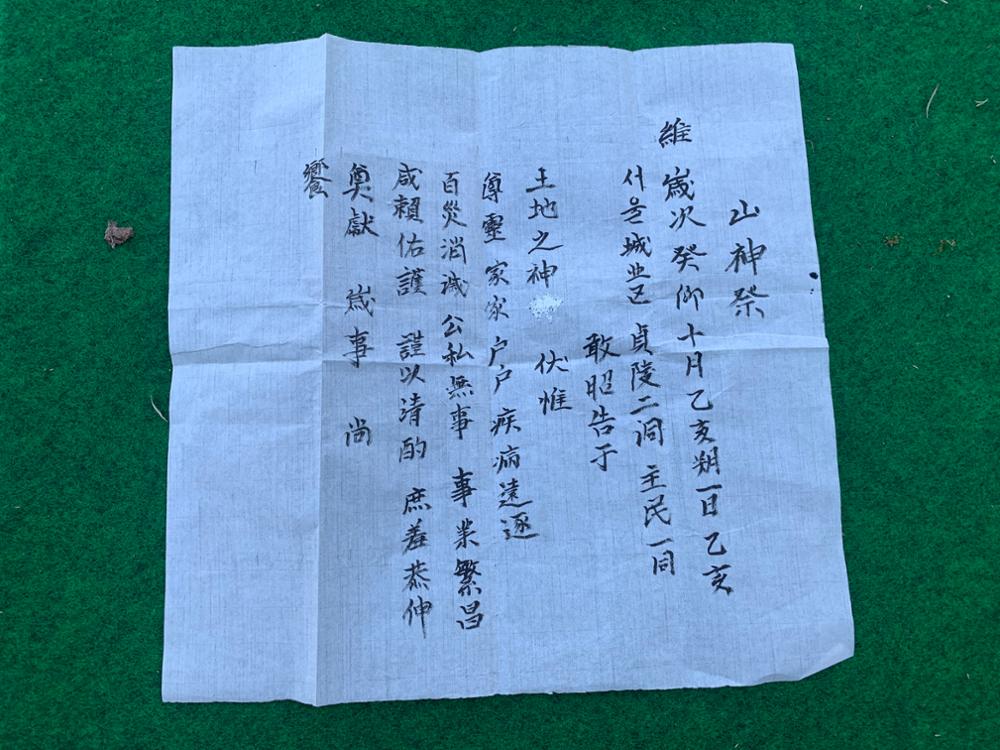 山神祭
維 歲次癸卯十月乙亥朔一日乙亥
서울城北区 貞陵二洞 主民一同
敢昭告于
土地之神 伏惟
尊靈 家家户户 疾病遠逐
百災消滅 公私無事 事業繁昌
咸賴佑謹 謹以清酌 庶羞恭伸
奠獻 歲事 尚
饗